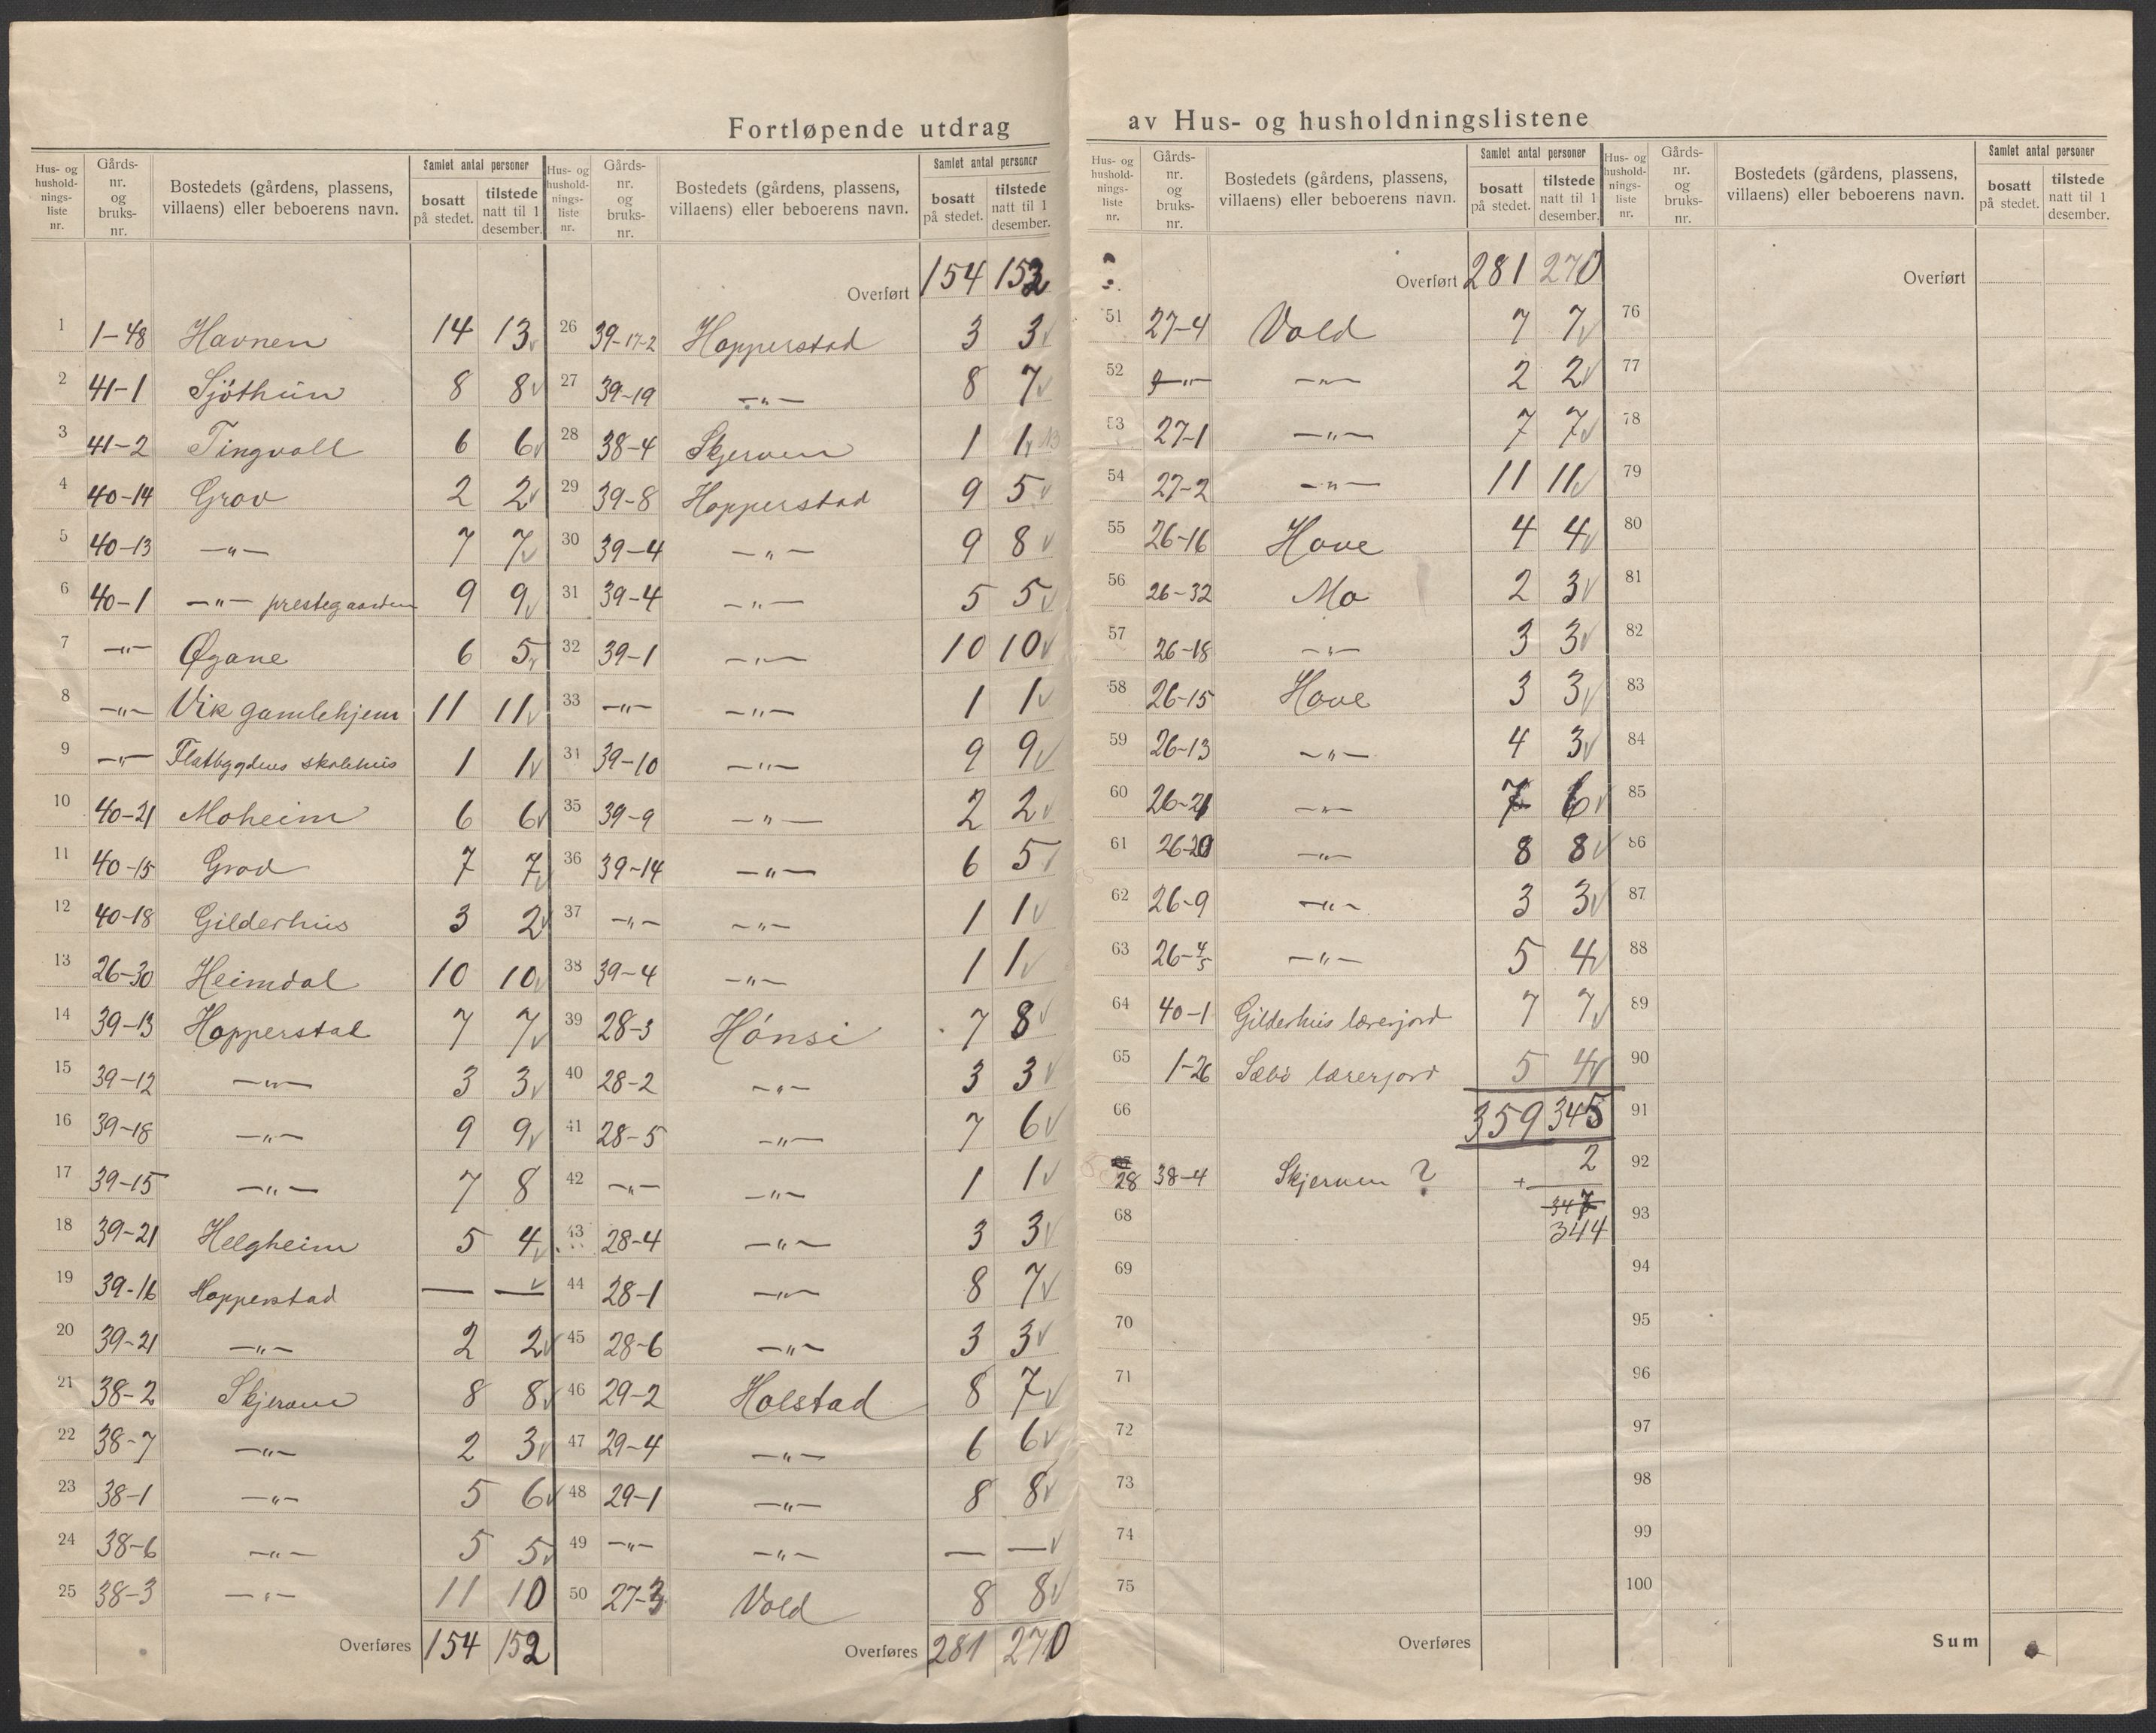 Fortløpende utdrag av Hus- og husholdningslistene
Hus- og hushold-nings-liste nr. Gårds-nr. og bruks-nr. Bostedets (gårdens, plassens, villaens) eller beboerens navn. Samlet antal personer bosatt på stedet. tilstede natt til 1 desember.
1 1-48 Havnen 14 13
2 41-1 Sjöthun 8 8
3 41-2 Tingvoll 6 6
4 40-14 Grov 2 2
5 40-13 —"— 7 7
6 40-1 —"— prestegaarden 9 9
7 —"— Øgane 6 5
8 —"— Vik gamlehjem 11 11
9 —"— Flatbygdens skolehus 1 1
10 40-21 Moheim 6 6
11 40-15 Grov 7 7
12 40-18 Gilderhus 3 2
13 26-30 Heimdal 10 10
14 39-13 Hopperstad 7 7
15 39-12 —"— 3 3
16 39-18 —"— 9 9
17 39-15 —"— 7 8
18 39-21 Helgheim 5 4
19 39-16 Hopperstad — —
20 39-21 —"— 2 2
21 38-2 Skjerven 8 8
22 38-7 —"— 2 3
23 38-1 —"— 5 6
24 38-6 —"— 5 5
25 38-3 —"— 11 10
Overføres 154 152
Hus- og hushold-nings-liste nr. Gårds-nr. og bruks-nr. Bostedets (gårdens, plassens, villaens) eller beboerens navn. Samlet antal personer bosatt på stedet. tilstede natt til 1 desember.
Overført 154 152
26 39-17-2 Hopperstad 3 3
27 39-19 —"— 8 7
28 38-4 Skjerven 1 1
29 39-8 Hopperstad 9 5
30 39-4 —"— 9 8
31 39-4 —"— 5 5
32 39-1 —"— 10 10
33 —"— —"— 1 1
34 39-10 —"— 9 9
35 39-9 —"— 2 2
36 39-14 —"— 6 5
37 —"— —"— 1 1
38 39-4 —"— 1 1
39 28-3 Hönsi 7 8
40 28-2 —"— 3 3
41 28-5 —"— 7 6
42 —"— —"— 1 1
43 28-4 —"— 3 3
44 28-1 —"— 8 7
45 28-6 —"— 3 3
46 29-2 Holstad 8 7
47 29-4 —"— 6 6
48 29-1 —"— 8 8
49 —"— —"— — —
50 27-3 Vold 8 8
Overføres 281 270
Hus- og hushold-nings-liste nr. Gårds-nr. og bruks-nr. Bostedets (gårdens, plassens, villaens) eller beboerens navn. Samlet antal personer bosatt på stedet. tilstede natt til 1 desember.
Overført 281 270
51 27-4 Vold 7 7
52 —"— —"— 2 2
53 27-1 —"— 7 7
54 27-2 —"— 11 11
55 26-16 Hove 4 4
56 26-32 Mo 2 3
57 26-18 —"— 3 3
58 26-15 Hove 3 3
59 26-13 —"— 4 3
60 26-21 —"— 7 6
61 26-20 —"— 8 8
62 26-9 —"— 3 3
63 26-4/5 —"— 5 4
64 40-1 Gilderhus lærerjord 7 7
65 1-26 Sæbö lærerjord 5 4
66 359 345
28 38-4 Skjerven ? + 2
347
68 344
69
70
71
72
73
74
75
Overføres
Hus- og hushold-nings-liste nr. Gårds-nr. og bruks-nr. Bostedets (gårdens, plassens, villaens) eller beboerens navn. Samlet antal personer bosatt på stedet. tilstede natt til 1 desember.
Overført
76
77
78
79
80
81
82
83
84
85
86
87
88
89
90
91
92
93
94
95
96
97
98
99
100
Sum